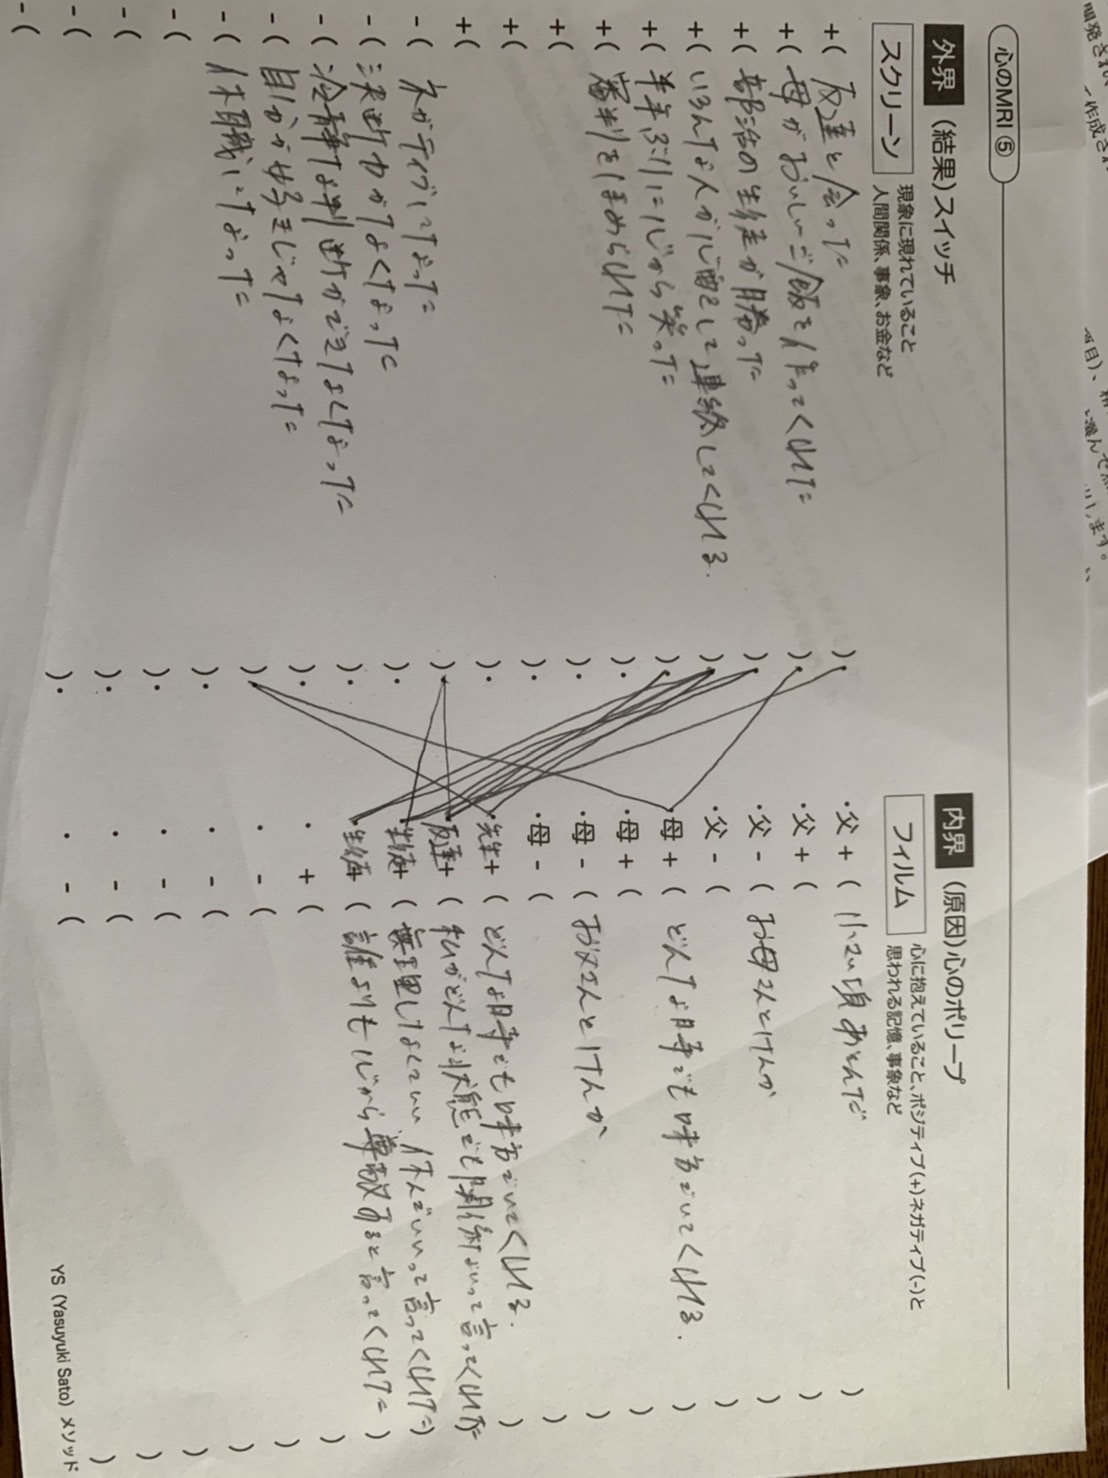 心のMRI ⑤
外界 (結果)スイッチ
スクリーン 現象に現れていること
人間関係、事象、お金など
+( 友達と会った )
+( 母がおいしいご飯を作ってくれた )
+( 部活の生徒が勝った )
+( いろんな人が心配して連絡してくれる. )
+( 半年ぶりに心から笑った )
+( 審判をほめられた )
+( )
+( )
+( )
-( ネガティブになった )
-( 決断力がなくなった )
-( 冷静な判断ができなくなった )
-( 自分が好きじゃなくなった )
-( 休職になった )
-( )
-( )
-( )
-( )
内界 (原因)心のポリープ
フィルム 心に抱えていること、ポジティブ(+)ネガティブ(-)と
思われる記憶、事象など
・父 + ( 小さい頃あそんだ )
・父 + ( )
・父 - ( お母さんとけんか )
・父 - ( )
・母 + ( どんな時でも味方でいてくれる. )
・母 + ( )
・母 - ( お父さんとけんか )
・母 - ( )
・先生+ ( どんな時でも味方でいてくれる. )
・友達+ ( 私がどんな状態でも関係ないって言ってくれた )
+ ( 無理しなくていい 休んでいいって言ってくれた )
・生徒+ ( 誰よりも心から尊敬すると言ってくれた )
・ + ( )
・ - ( )
・ - ( )
・ - ( )
・ - ( )
・ - ( )
YS (Yasuyuki Sato) メソッド
開発され
作成され
します。